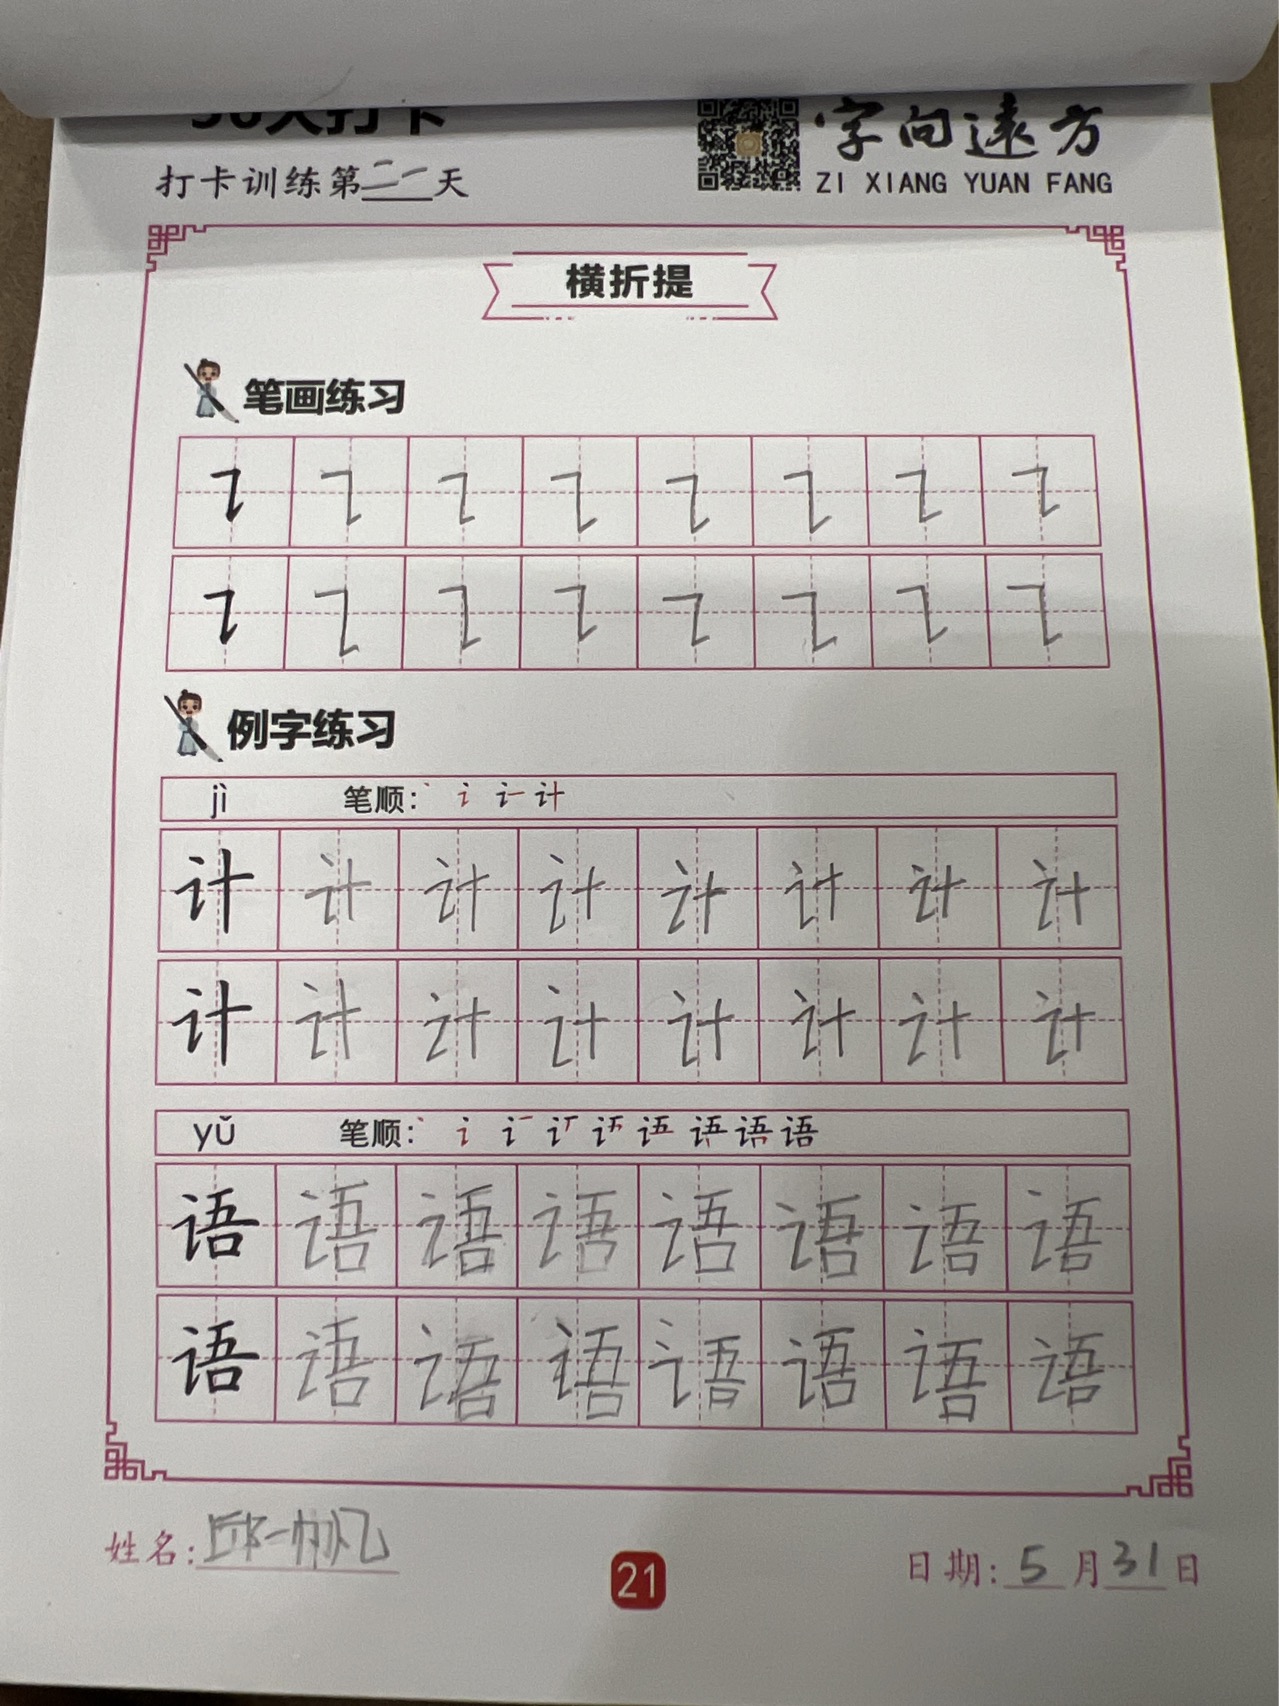 30天打卡
字向遠方
打卡训练第二一天
ZI XIANG YUAN FANG
横折提
笔画练习
例字练习
jì 笔顺: 丶 讠 计
计 计 计 计 计 计 计 计
计 计 计 计 计 计 计 计
yǔ 笔顺: 丶 讠 语
语 语 语 语 语 语 语 语
语 语 语 语 语 语 语 语
姓名: 邱一帆
21
日期: 5月31日